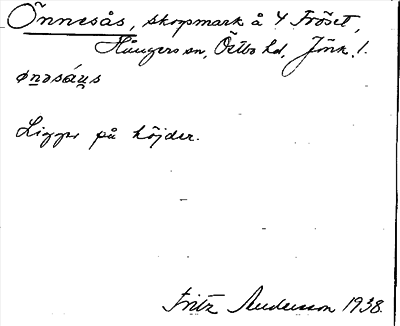 Önnesås, skogsmark å 4 Fröset,
Hångers sn, Östbo hd, Jönk. l.
ønəsáu̯s
Ligger på höjder.
Fritz Andersson 1938.